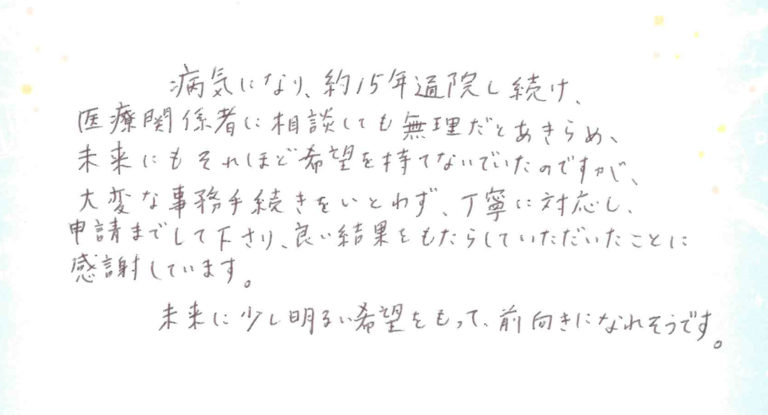 病気になり、約15年通院し続け、
医療関係者に相談しても無理だとあきらめ、
未来にもそれほど希望を持てないでいたのですが、
大変な事務手続きをいとわず、丁寧に対応し、
申請までして下さり、良い結果をもたらしていただいたことに
感謝しています。
未来に少し明るい希望をもって、前向きになれそうです。